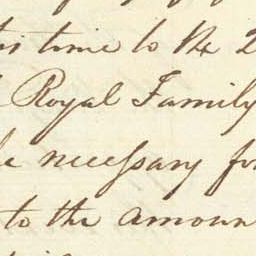 time to the 2
Royal Family
necessary for
to the amoun